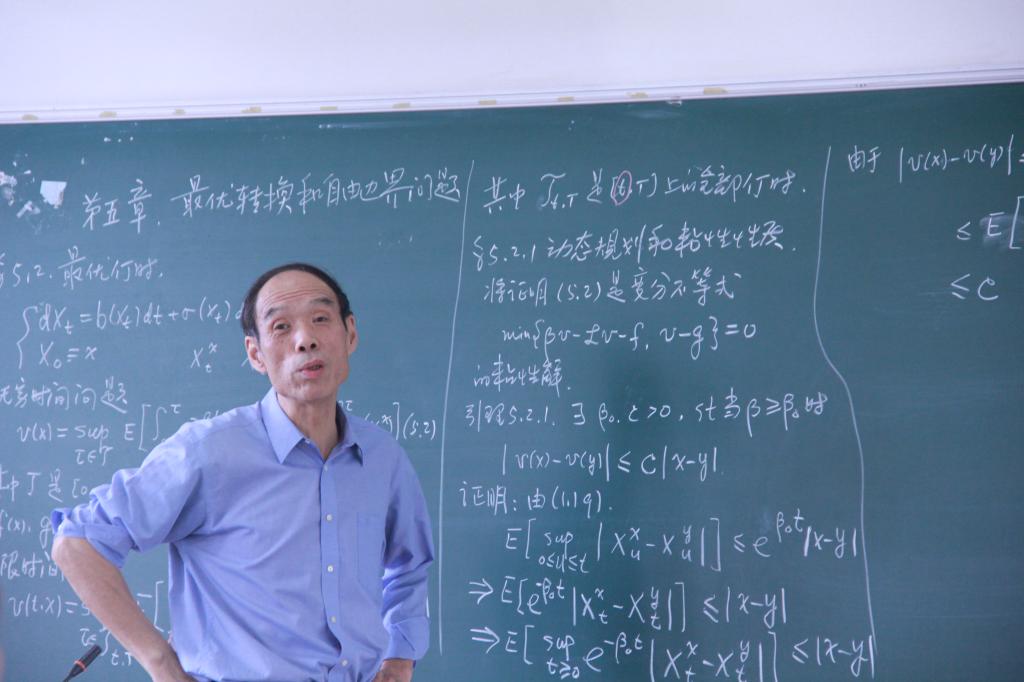 第五章. 最优转换和自由边界问题
§5.2. 最优停时.
dX_t = b(X_t)dt + σ(X_t)
X_0 = x X_t^x
无穷时间问题
v(x) = sup_{τ∈𝒯} E[∫^τ (5.2)
中 𝒯 是
f(x), g
限时间
v(t,x) = s
其中 𝒯_{t,T} 是[t,T]上的全部停时.
§5.2.1 动态规划和粘性性质.
将证明 (5.2) 是变分不等式
min{βv-ℒv-f, v-g}=0
的粘性解.
引理5.2.1. ∃ β_0. C>0, st当 β≥β_0 时
|v(x)-v(y)| ≤ C|x-y|.
证明: 由(1.19).
E[sup_{0≤u≤t} |X_u^x - X_u^y|] ≤ e^{β_0t}|x-y|
⇒ E[e^{-β_0t} |X_t^x - X_t^y|] ≤ |x-y|
⇒ E[sup_{t≥0} e^{-β_0t} |X_t^x - X_t^y|] ≤ |x-y|
由于 |v(x)-v(y)| =
≤ E[
≤ C